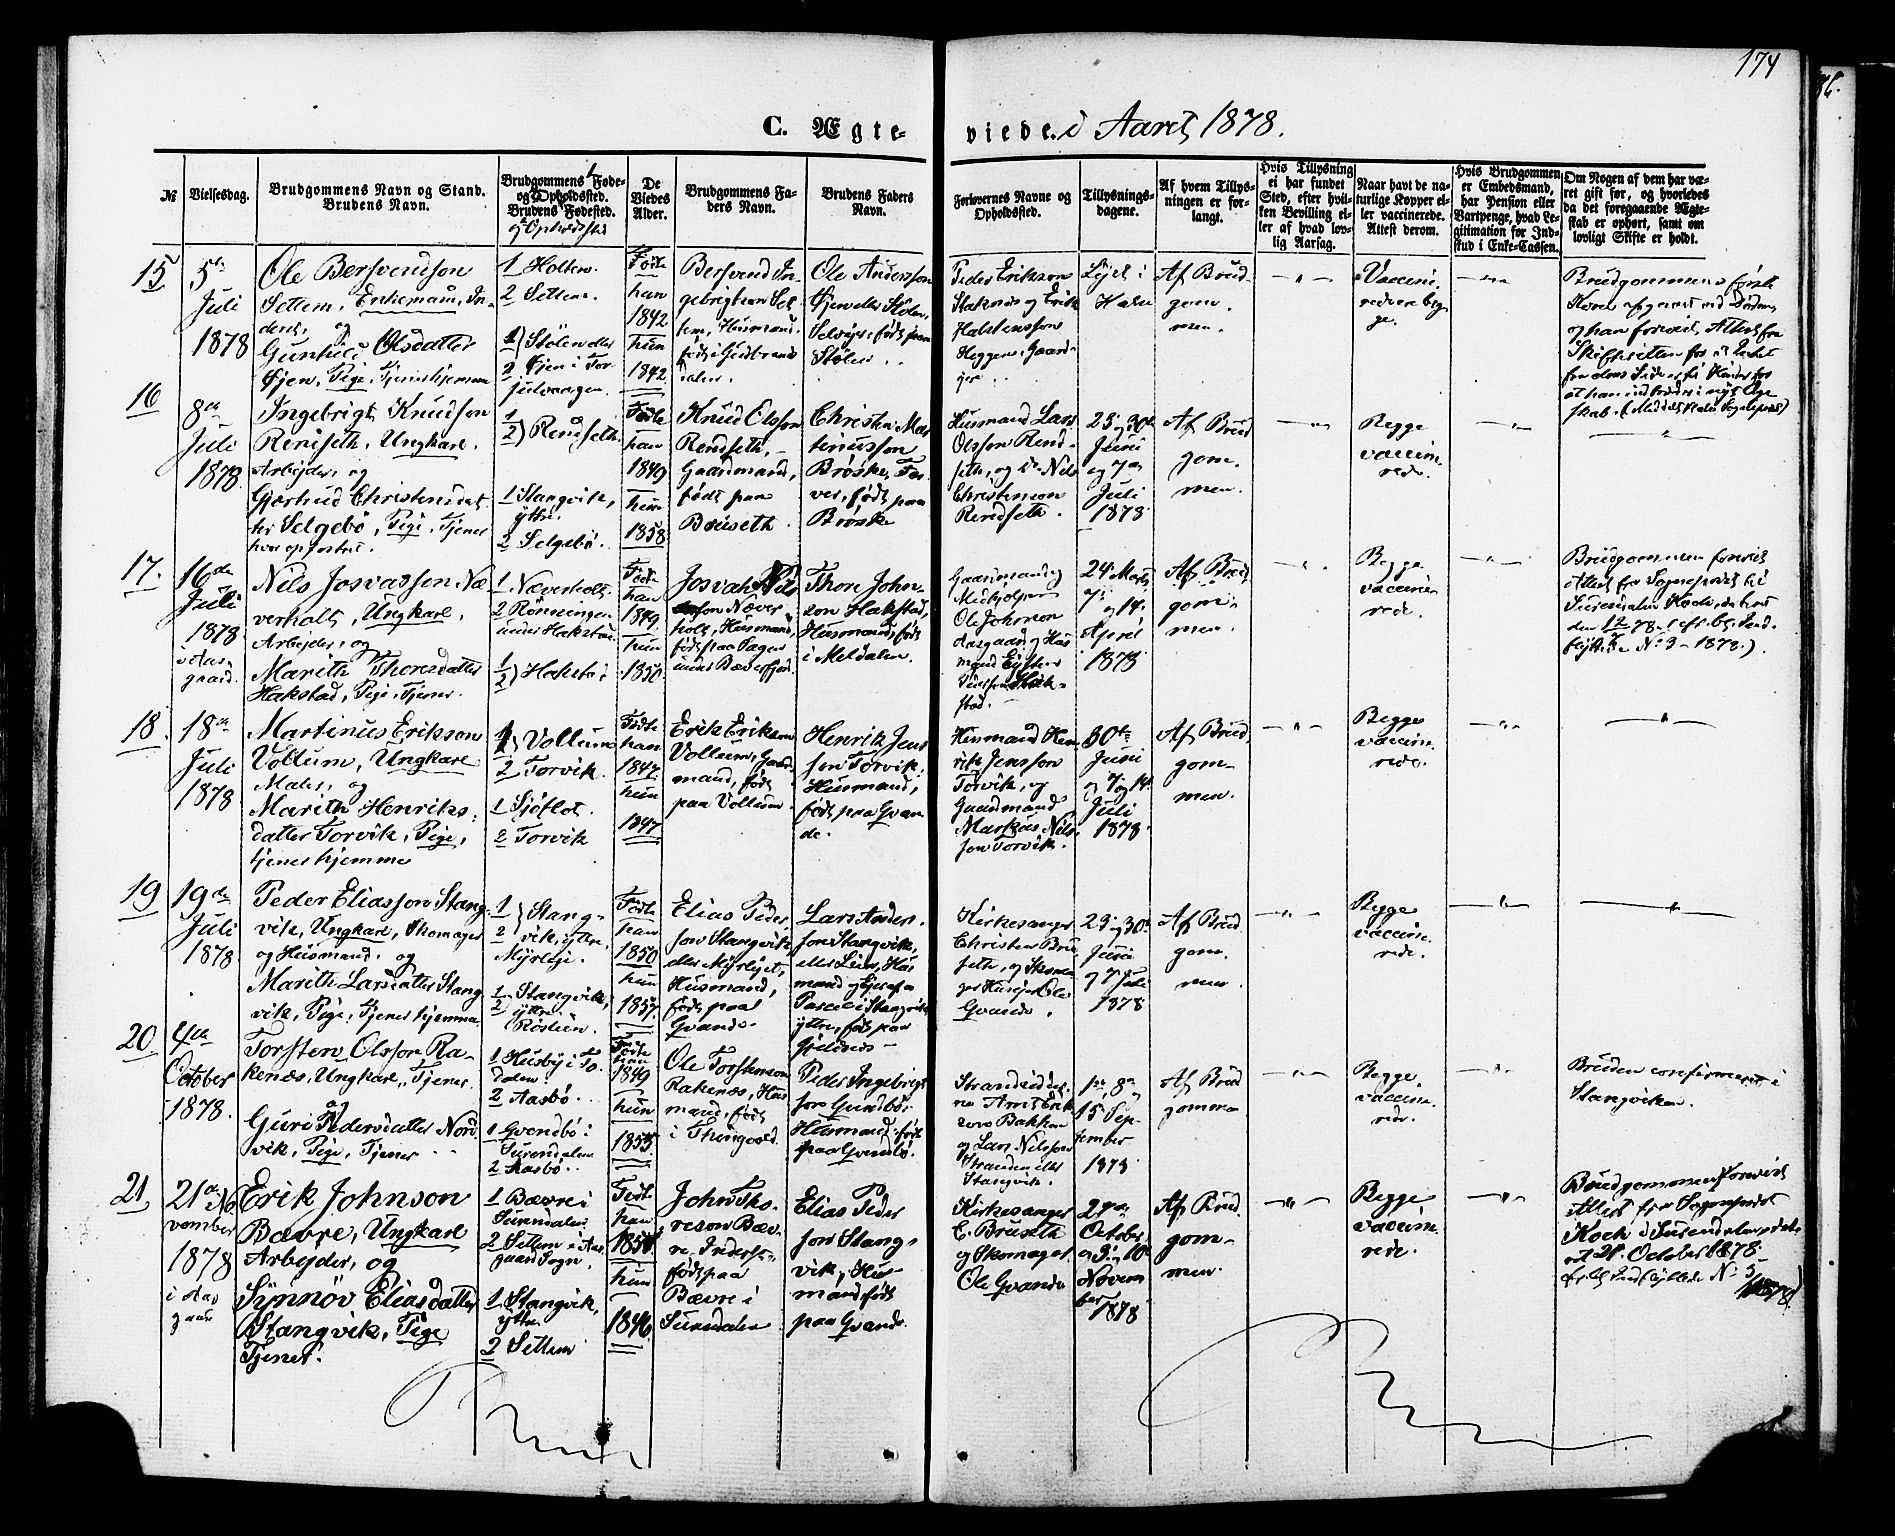 174
C. Ægteviede. i Aaret 1878.
№
Vielsesdag.
Brudgommens Navn og Stand.
Brudens Navn.
Brudgommens Føde-
og Opholdssted.
Brudens Fødested.
og Opholdssted
De
Viedes
Alder.
Brudgommens Fa-
ders Navn.
Brudens Faders
Navn.
Forlovernes Navne og
Opholdssted.
Tillysnings-
dagene.
Af hvem Tillys-
ningen er for-
langt.
Hvis Tillysning
ei har fundet
Sted, efter hvil-
ken Bevilling el-
ler af hvad lov-
lig Aarsag.
Naar havt de na-
turlige Kopper el-
ler vaccinerede.
Attest derom.
Hvis Brudgommen
er Embedsmand,
har Pension eller
Vartpenge, hvad Le-
gitimation for Ind-
skud i Enke-Cassen.
Om Nogen af dem har væ-
ret gift før, og hvorledes
da det foregaaende Ægte-
skab er ophørt, samt om
lovligt Skifte er holdt.
15
5te
Juli
1878
Ole Bersvendson
Settem, Enkemand, In-
derst, og
Gunhild Olsdatter
Øjen, Pige, Tjener hjemme
1 Holten.
2 Settem.
1) Stölen eller
2 Øjen i Tor-
julvaagen.
Födte
han
1842
hun
1842
Bersvend In-
gebrigtsen Set-
tem, Husmand.
född i Gudbrands
dalen.
Ole Andersson
Øjen eller Stölen,
Selvejer, född paa
Stölen.
Peder Erikson
Staknes og Erik
Halstensson
Heggem, Gaard-
Lyst i
Halse
Af Brud-
gom-
men.
Vaccine-
rede beg-
ge.
Brudgommens förste
Kone afgaaet ved Döden,
og han foreviist Attest fra
Skifteretten
16
8de
Juli
1878.
Ingebrigt Knudson
Rendseth, Ungkarl.
Arbejder, og
Gjertrud Christensdat-
ter Selgebö, Pige, Tjener
hvor opfostret.
1
2) Rendseth.
1 Stangvik,
yttre.
2 Selgebö.
Födte
han
1849
hun
1858
Knud Olsson
Rendseth,
Gaardmand,
född paa
Bruseth.
Christen Mar-
tinusson
Bröske, Far-
ver, född paa
Bröske
Husmand Lars
Olsson Rend-
seth, og Nils
Christensen
Rendseth.
23 og 30te
Juni
og 7de
Juli
1878
Af Brud
gom-
men.
Begge
vaccine-
rede.
17.
16de
Juli
1878
i Aas-
gaard.
Nils Josvasson Næ-
verholt, Ungkarl.
Arbejder, og
Marith Thoresdatter
Hakstad, Pige, Tjener.
1 Næverholt.
2 Rönningen
under Hakstad.
1
2) Hakstad
Födte
han
1849.
hun
1850.
Josvah Nils
son Næver
holt, Husmand,
född paa
under Bæverfjord
Thore John-
son Hakstad,
Husmand, född
i Meldalen.
Gaardmand og
Medhjelper
Ole Johnson
Aasgaard og Hus
mand
Hak-
stad.
24 Marts,
7
og 14
April
1878
Af Brud
gom-
men.
Begge
vaccine-
rede.
Brudgommen foreviist
Attest fra Sognepræst til
Surendalen Koch, dateret
18
18de
Juli
1878
Martinus Erikson
Vollum, Ungkarl
Maler, og
Marith Henriks-
datter Torvik, Pige,
tjener hjemme
1) Vollum
2 Torvik.
1 Sjöflot.
2 Torvik
Födte
han
1847.
hun
1847
Erik Erikson
Vollum, Gaard-
mand, född
paa Vollum.
Henrik Jens
son Torvik,
Husmand,
född paa Gvan
de.
Husmand Hen
rik Jensson
Torvik, og
Gaardmand
Markus Nils-
son Torvik.
30te
Juni
og 7 og 14
Juli
1878
Af Brud
gom-
men.
Begge
vaccine-
rede.
19
19de
Juli
1878
Peder Eliasson Stang-
vik, Ungkarl, Skomager
og Husmand, og
Marith Larsdatter Stang
vik, Pige, Tjener hjemme.
1
2) Stang-
vik, ytre.
Myrleje.
1
2) Stangvik,
ytre
Röslien.
Födte
han
1850
hun
1857.
Elias Peder
son Stangvik
eller Myrlejet,
Husmand,
född paa
Gvande.
Lars Anders-
son Stangvik,
eller Lien, Hus
mand og Ejer af en
Parcel i Stangvik
ytre, född paa
Gjeldnes
Kirkesanger
Christen Bru-
seth, og Skoma-
ger Ole
Gvande.
23 og 30te
Juni
og 7 Juli
1878
Af Brud
gom-
men
Begge
vaccine-
rede.
20
4de
October
1878.
Torsten Olsson Ra-
kenæs, Ungkarl, Tjener.
og
Guri Pedersdatter Nord
vik, Pige, Tjener
1 Husby i To-
dalen.
2 Aasbö.
1 Gvendbö i
Surendalen
2 Aasbö.
Födte
han
1849
hun
1855
Ole Torstenson
Rakenæs, Hus
mand, född
i Thingvold.
Peder Ingebrigt
son Gvendbö,
Husmand, född
paa Gvendbö.
Strandsidder-
ne Arnt Erik
son Bakken
og Lars Nilsson
Stranden eller
Stangvik.
1ste, 8de og
15 Sep-
tember
1878
Af Brud
gommen
Begge
vaccine-
rede.
Bruden confirmeret i
Stangviken.
21
21de No
vember
1878
i Aas
gaard
Erik Johnson
Bævre, Ungkarl
Arbejder, og
Synnöv Eliasdatter
Stangvik, Pige
Tjener.
1 Bævre i
Surendalen
2 Settem i Aas-
gaard Sogn.
1 Stangvik,
ytre.
2 Settem
Födte
han
1851
hun
1846
John Tho-
reson Bæv-
re, Inderst,
född paa
Bævre i
Surendalen
Elias Peder
son Stang-
vik, Hus-
mand född
paa Gvande.
Kirkesanger
C. Bruseth
og Skomager
Ole Gvande
27de
October
og 3 og 10
Novem
ber
1878
Af Brud
gom-
men.
Begge
vaccine-
rede.
Brudgommen foreviist
Attest fra Sognepræst
Koch i Surendalen, date-
ret 21 October 1878
1878)